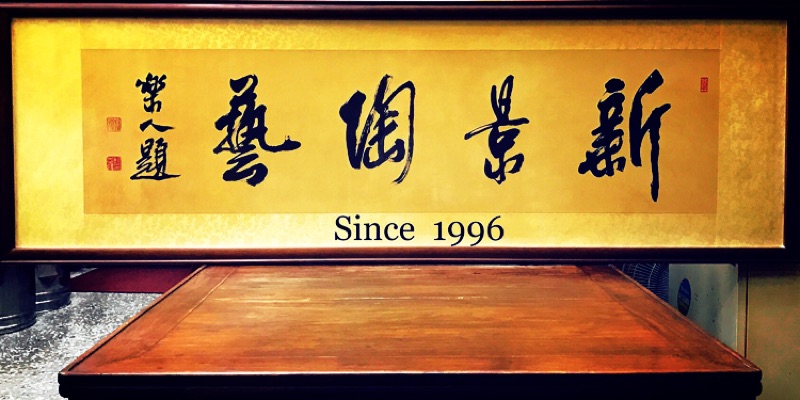 新景陶藝
樂人題
Since 1996